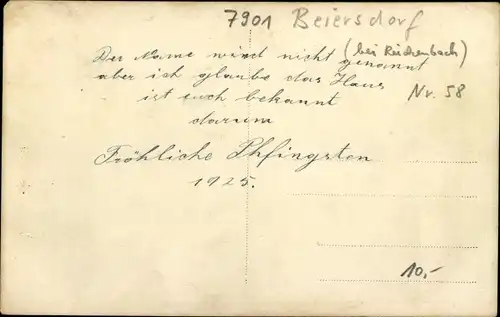 7901 Beiersdorf
(bei Reichenbach)
Der Name wird nicht genannt
aber ich glaube das Haus
Nr. 58
ist euch bekannt
darum
Fröhliche Phfingsten
1925.
10,-